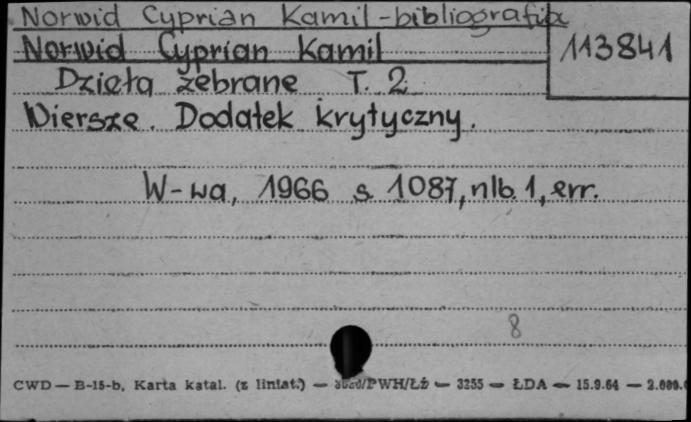 Norwid Cyprian Kamil - bibliografia
113841
Norwid Cyprian Kamil
Dzieła zebrane T. 2
Wiersze. Dodatek krytyczny.
W-wa, 1966 s 1087, nlb. 1, err.
8
CWD — B-15-b. Karta katal. (z liniat.) — /PWH/Łż — 3255 — ŁDA — 15.9.64 —